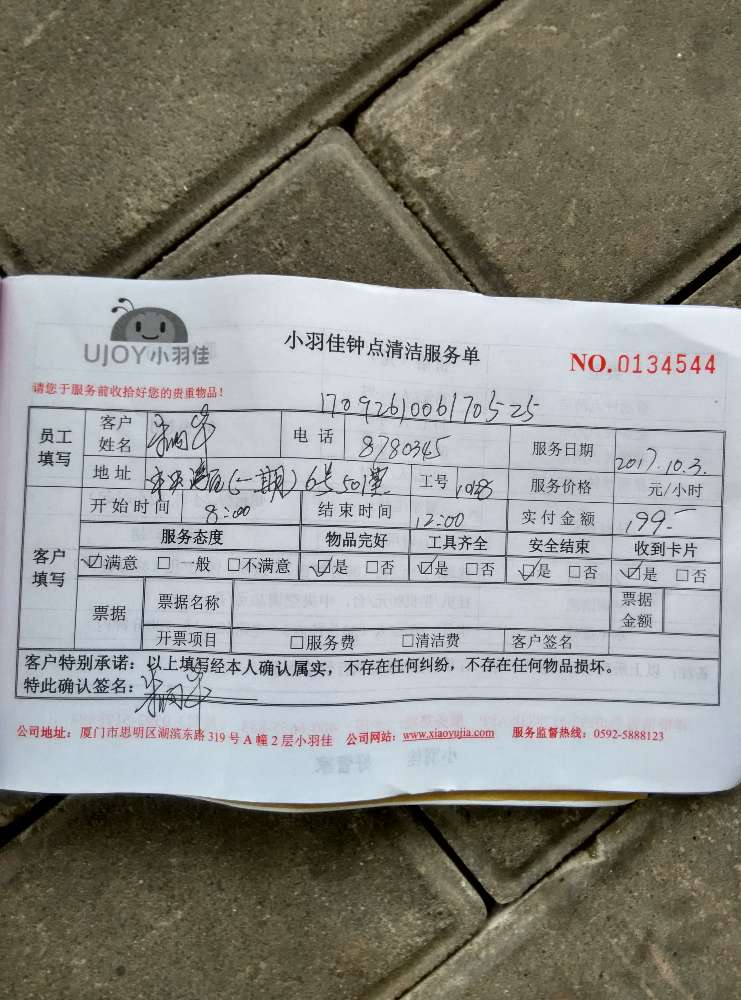 UJOY小羽佳
小羽佳钟点清洁服务单
NO.0134544
请您于服务前收拾好您的贵重物品!
1709261006170525
员工填写 客户姓名 电话 8780345 服务日期 2017.10.3.
地址 (一期)6号501室 工号 服务价格 元/小时
客户填写 开始时间 8:00 结束时间 12:00 实付金额 199-
服务态度 物品完好 工具齐全 安全结束 收到卡片
☑满意 □一般 □不满意 ☑是 □否 ☑是 □否 ☑是 □否 ☑是 □否
票据 票据名称 票据金额
开票项目 □服务费 □清洁费 客户签名
客户特别承诺:以上填写经本人确认属实,不存在任何纠纷,不存在任何物品损坏。
特此确认签名:
公司地址:厦门市思明区湖滨东路319号A幢2层小羽佳 公司网站:www.xiaoyujia.com 服务监督热线:0592-5888123